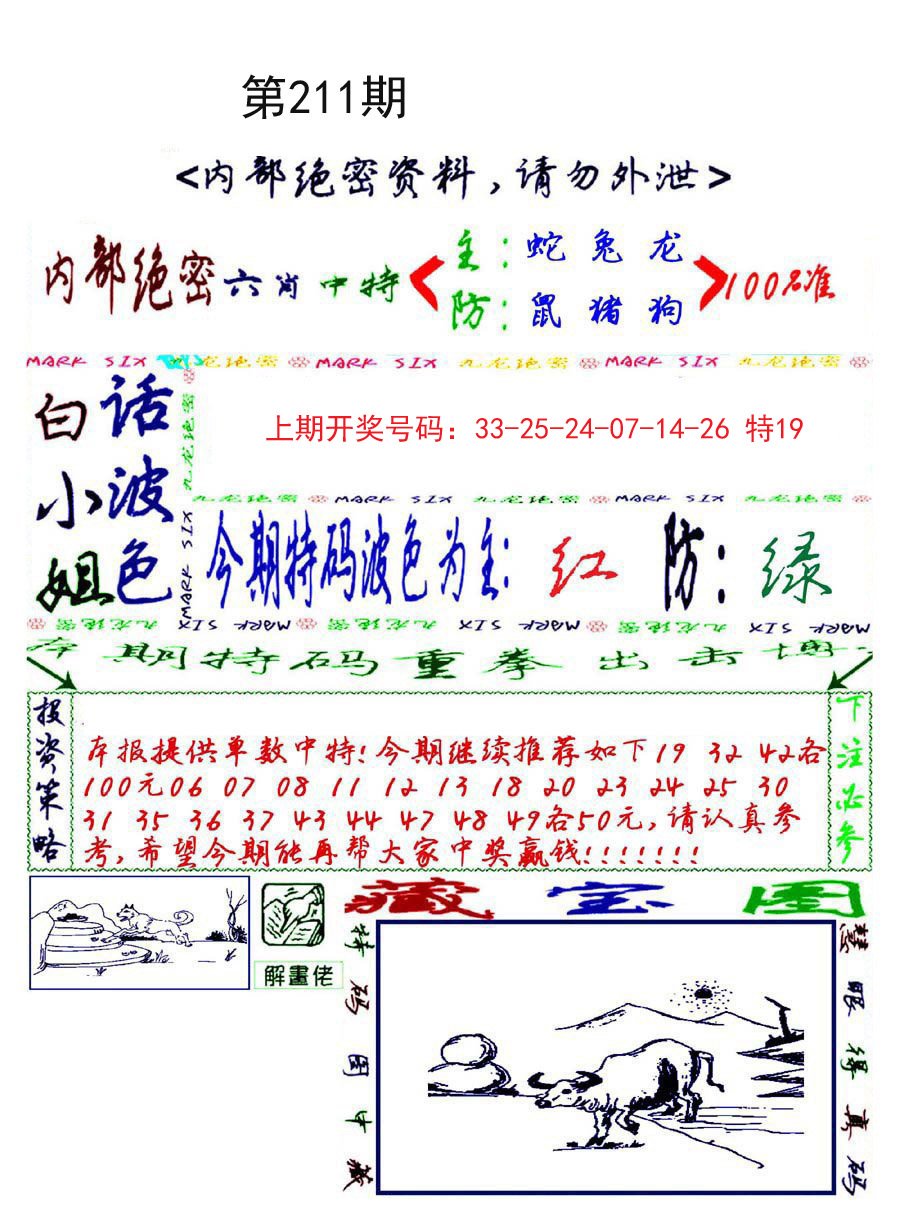 第211期
<内部绝密资料,请勿外泄>
内部绝密六肖中特
主:蛇兔龙
防:鼠猪狗
100%准
MARK SIX 九龙绝密 MARK SIX 九龙绝密 MARK SIX 九龙绝密
白话
小波
姐色
九龙绝密 MARK SIX
上期开奖号码: 33-25-24-07-14-26 特19
九龙绝密 MARK SIX 九龙绝密 MARK SIX 九龙绝密
今期特码波色为主: 红 防: 绿
九龙绝密 MARK SIX 九龙绝密 MARK SIX 九龙绝密 MARK SIX
本期特码重拳出击博
投资策略
本报提供单数中特!今期继续推荐如下19 32 42各
100元06 07 08 11 12 13 18 20 23 24 25 30
31 35 36 37 43 44 47 48 49各50元,请认真参
考,希望今期能再帮大家中奖赢钱!!!!!!!
下注必参
解畫佬
藏宝图
特码图中藏
慧眼得真码